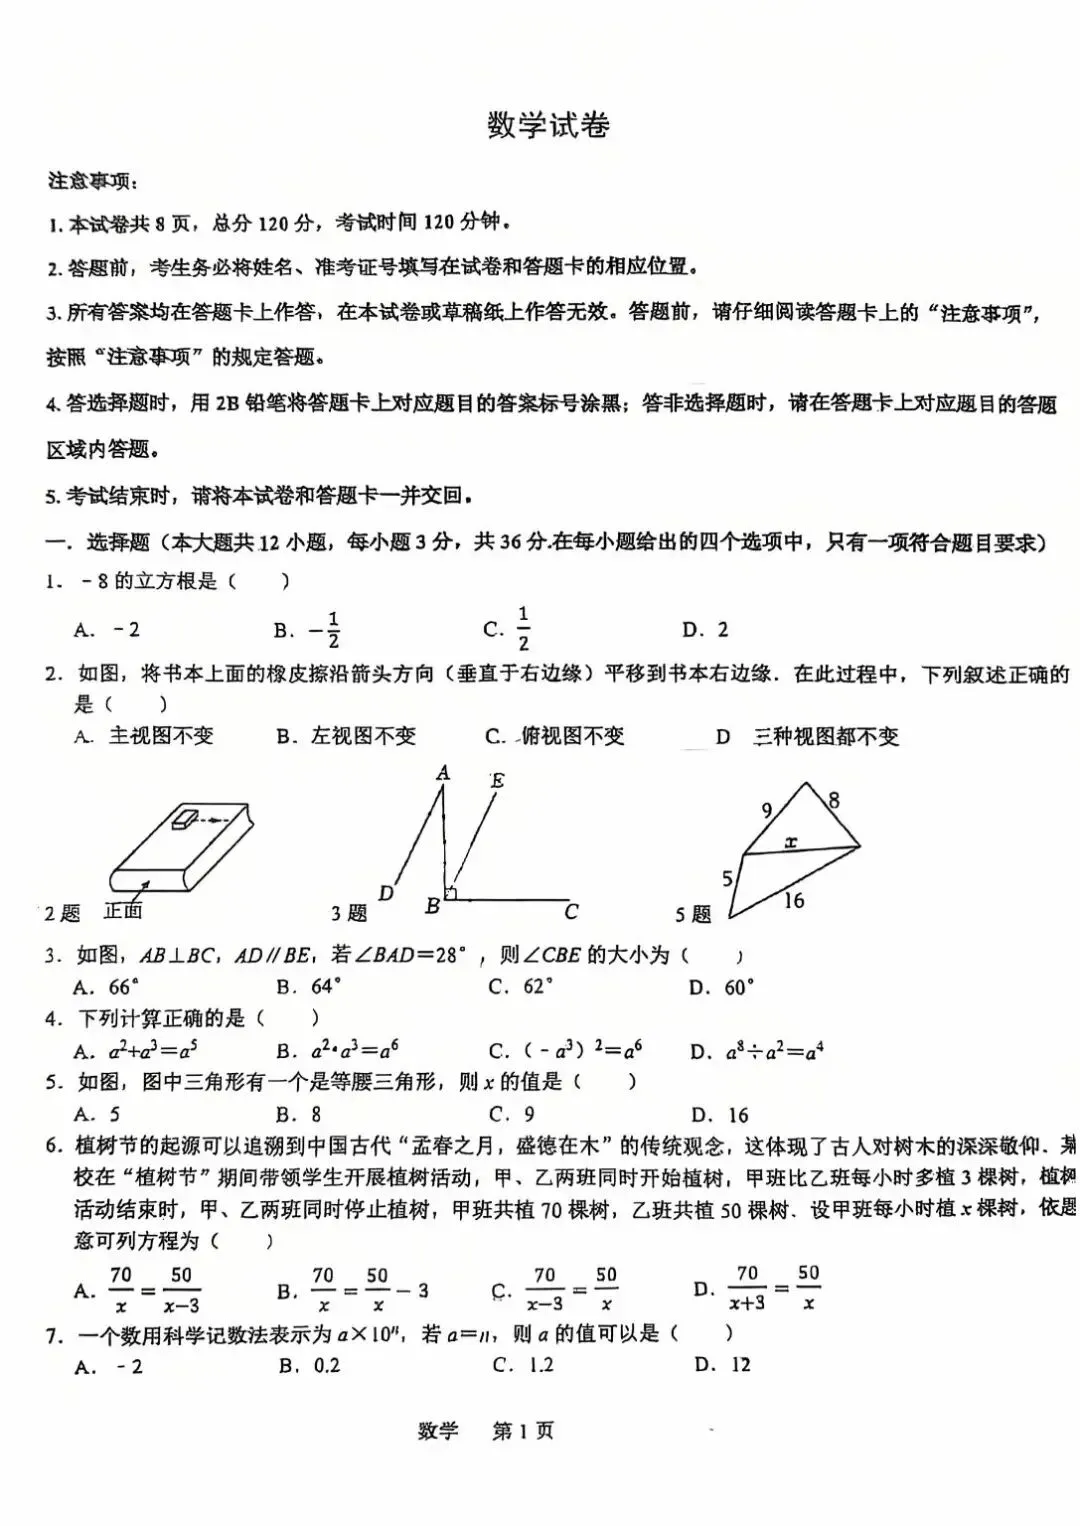 数学试卷
注意事项：
1. 本试卷共 8 页，总分 120 分，考试时间 120 分钟。
2. 答题前，考生务必将姓名、准考证号填写在试卷和答题卡的相应位置。
3. 所有答案均在答题卡上作答，在本试卷或草稿纸上作答无效。答题前，请仔细阅读答题卡上的“注意事项”，
按照“注意事项”的规定答题。
4. 答选择题时，用 2B 铅笔将答题卡上对应题目的答案标号涂黑；答非选择题时，请在答题卡上对应题目的答题
区域内答题。
5. 考试结束时，请将本试卷和答题卡一并交回。
一．选择题（本大题共 12 小题，每小题 3 分，共 36 分.在每小题给出的四个选项中，只有一项符合题目要求）
1．﹣8 的立方根是（　　）
A．﹣2　B．−1/2　C．1/2　D．2
2．如图，将书本上面的橡皮擦沿箭头方向（垂直于右边缘）平移到书本右边缘．在此过程中，下列叙述正确的
是（　　）
A．主视图不变　B．左视图不变　C．俯视图不变　D　三种视图都不变
A
E
D
B
C
9
8
x
5
16
2 题　正面　3 题　5 题
3．如图，AB⊥BC，AD∥BE，若∠BAD＝28°，则∠CBE 的大小为（　　）
A．66°　B．64°　C．62°　D．60°
4．下列计算正确的是（　　）
A．a²+a³＝a⁵　B．a²•a³＝a⁶　C．（﹣a³）²＝a⁶　D．a⁸÷a²＝a⁴
5．如图，图中三角形有一个是等腰三角形，则 x 的值是（　　）
A．5　B．8　C．9　D．16
6．植树节的起源可以追溯到中国古代“孟春之月，盛德在木”的传统观念，这体现了古人对树木的深深敬仰．某
校在“植树节”期间带领学生开展植树活动，甲、乙两班同时开始植树，甲班比乙班每小时多植 3 棵树，植树
活动结束时，甲、乙两班同时停止植树，甲班共植 70 棵树，乙班共植 50 棵树．设甲班每小时植 x 棵树，依题
意可列方程为（　　）
A．70/x = 50/(x−3)　B．70/x = 50/x − 3　C．70/(x−3) = 50/x　D．70/(x+3) = 50/x
7．一个数用科学记数法表示为 a×10ⁿ，若 a＝n，则 a 的值可以是（　　）
A．﹣2　B．0.2　C．1.2　D．12
数学　第 1 页